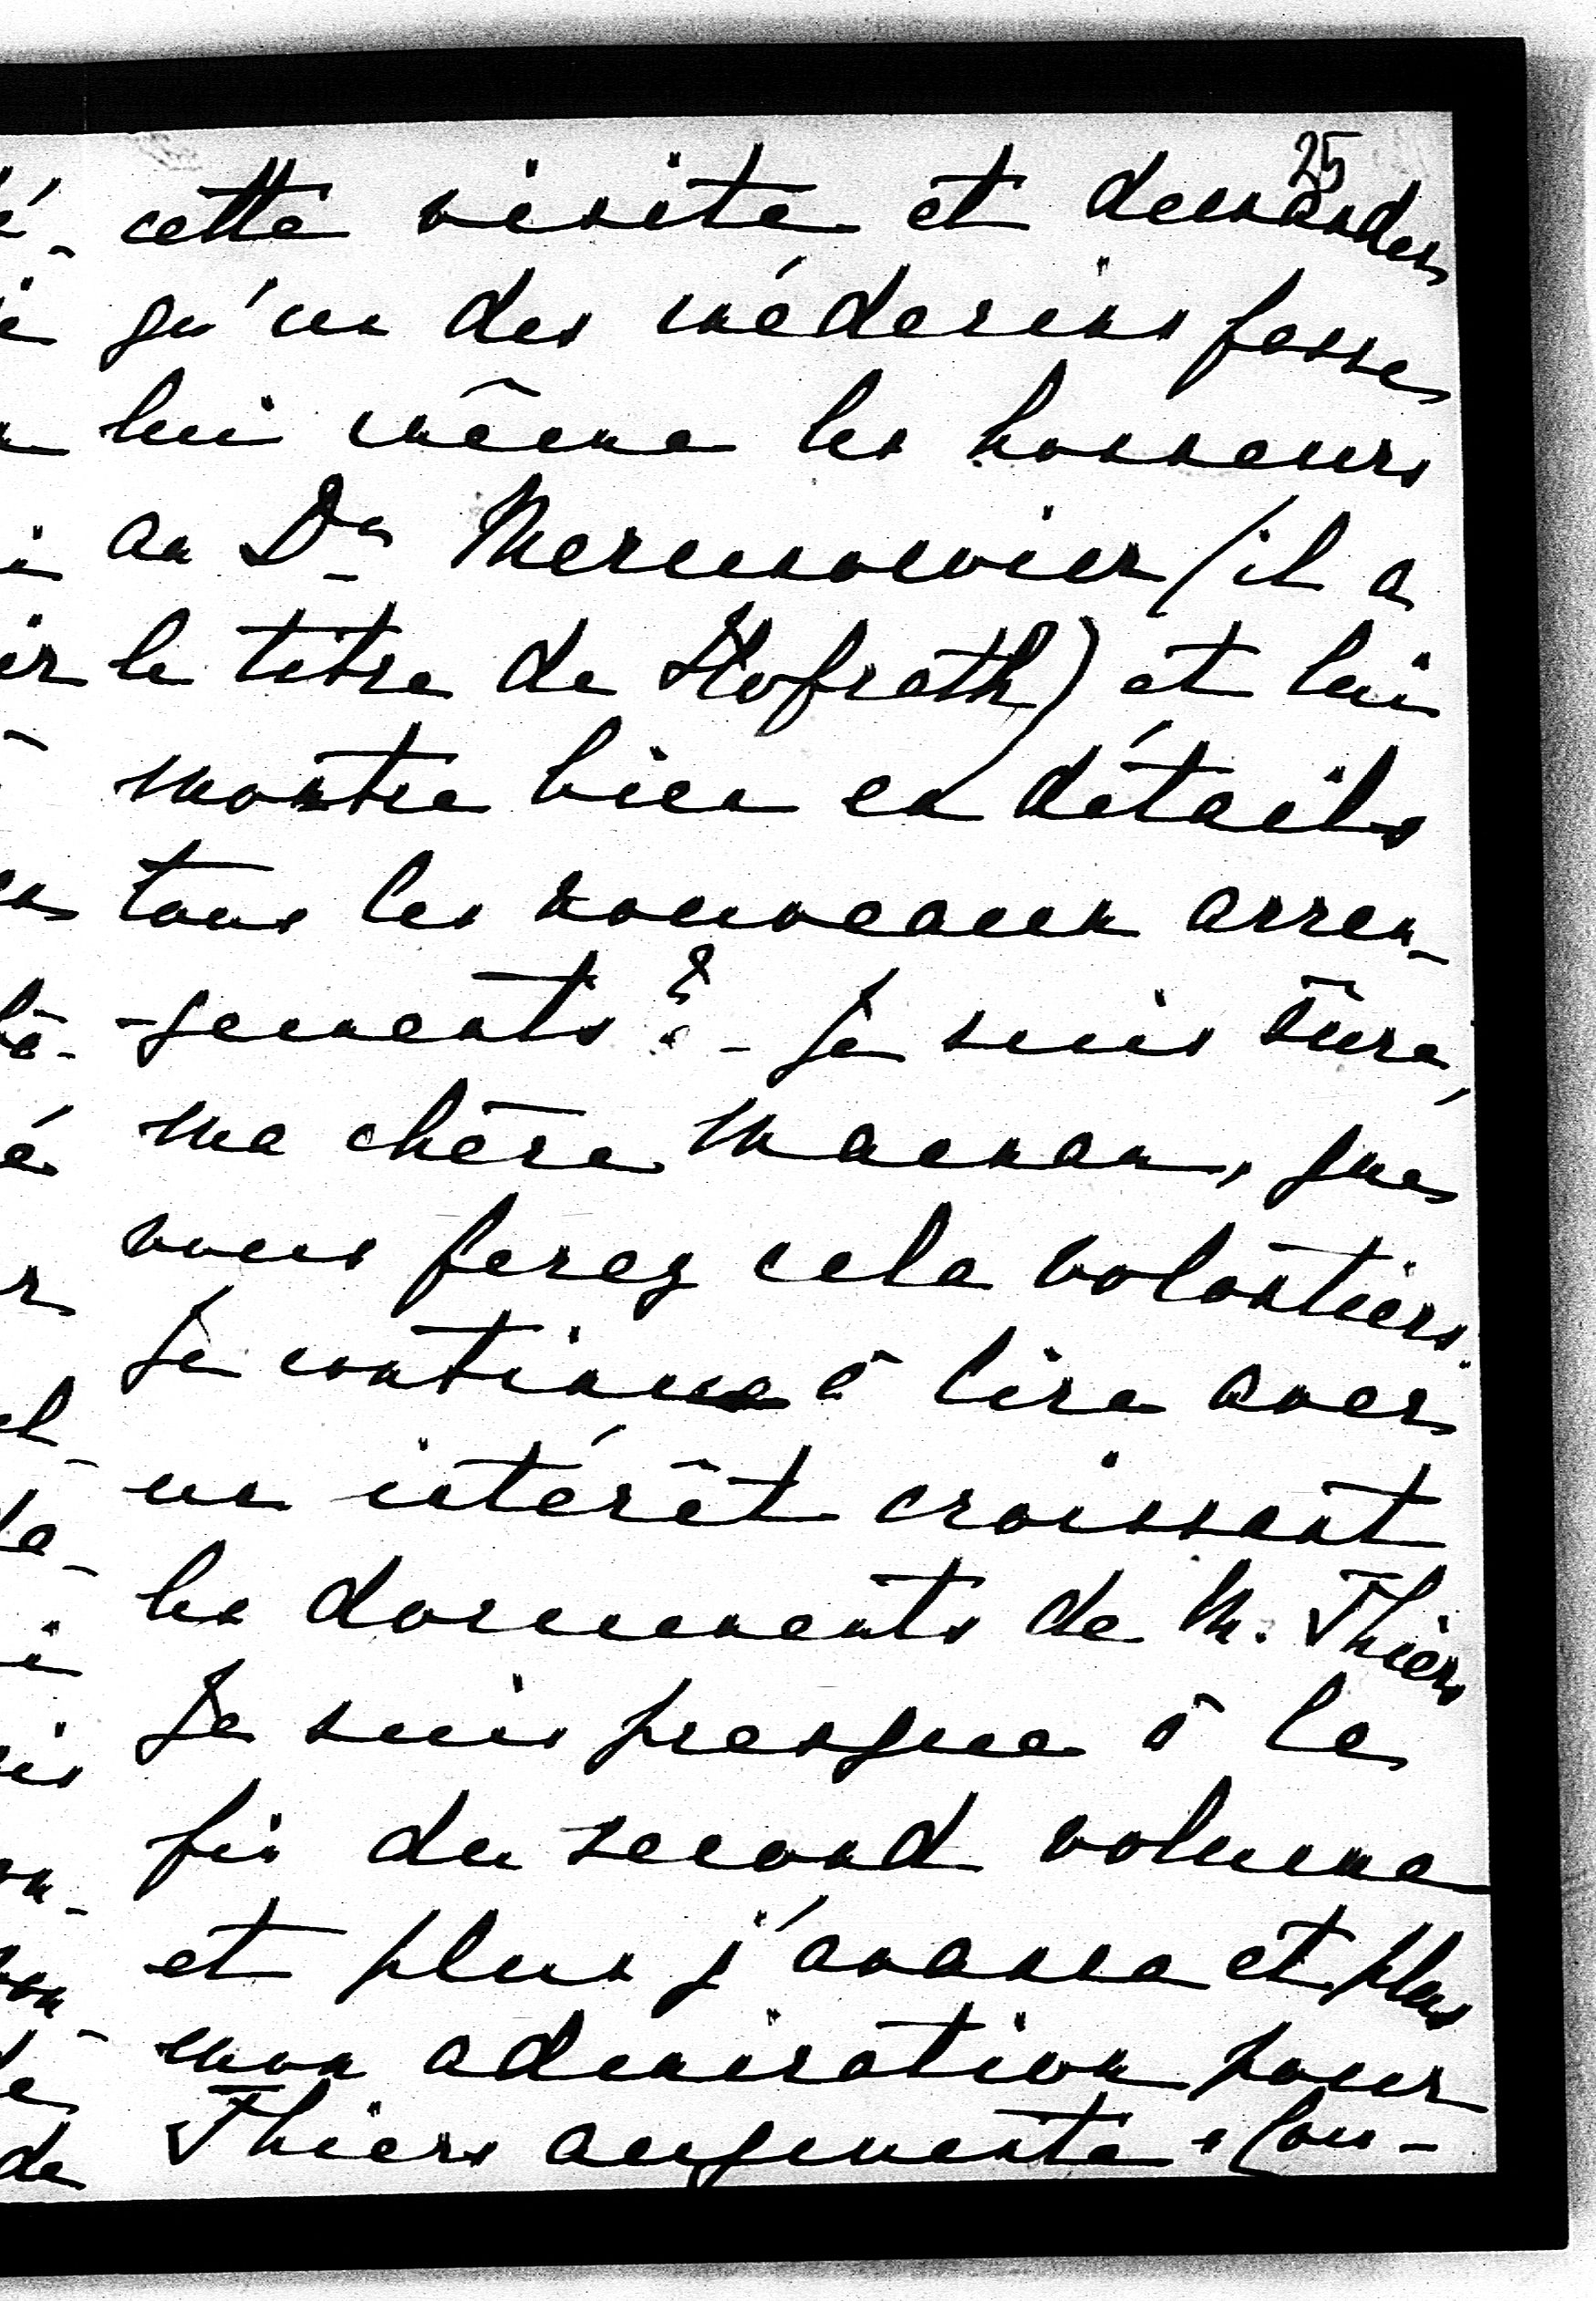 25
cette visite et demander
qu'un des médecins fasse
lui même les honneurs
au Dr (il a
le titre de Hofrath) et lui
montre bien en détails
tous les nouveaux arran-
-gements? - Je suis sûre,
ma chère Maman, que
vous ferez cela volontiers.
Je continue à lire avec
un intérêt croissant
les documents de M. Thiers
Je suis presque à la
fin du second volume
et plus j'avance et plus
mon admiration pour
Thiers augmente.